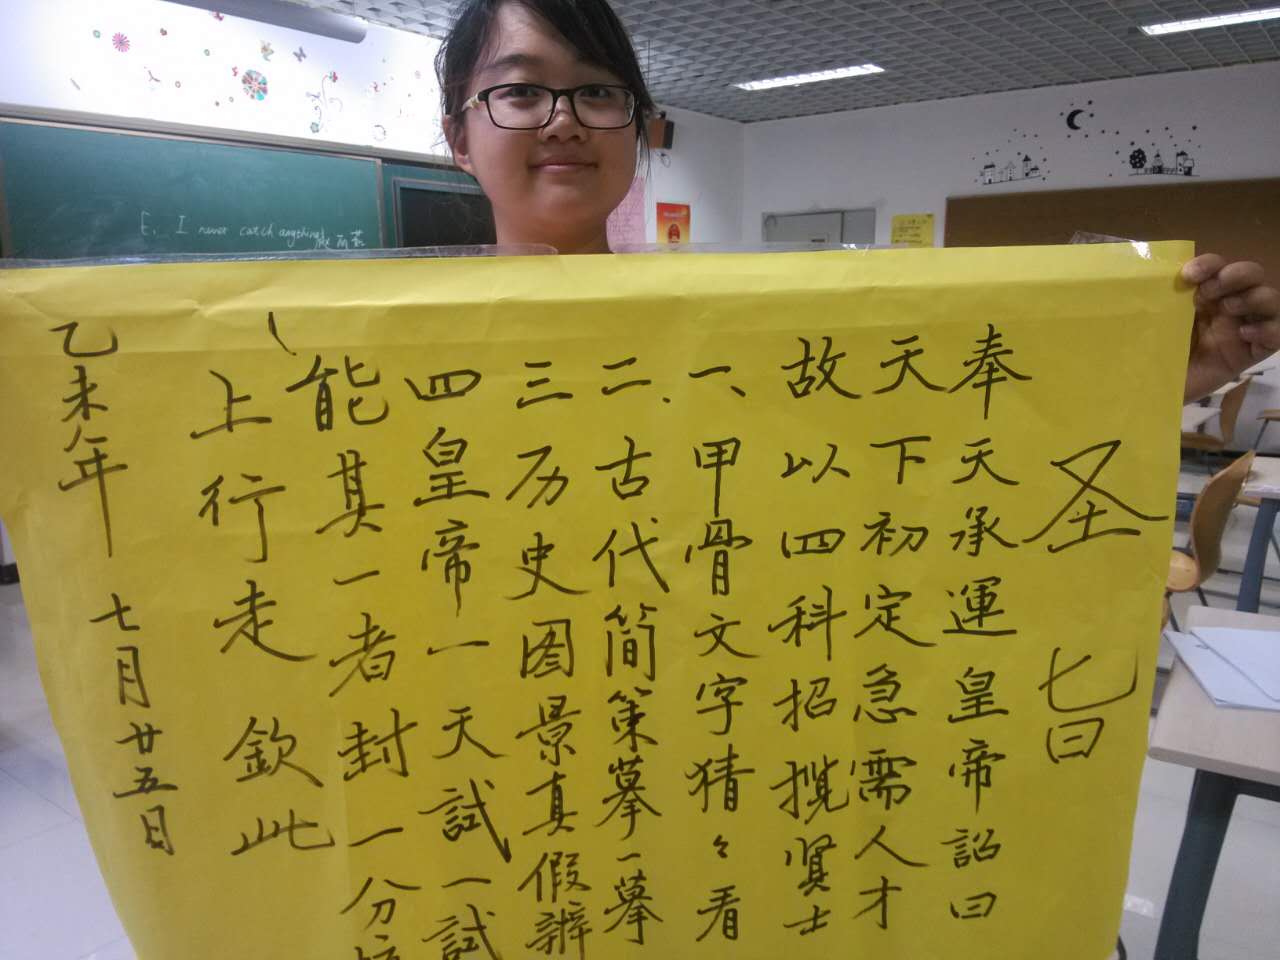 圣旨
奉天承運皇帝詔曰
天下初定急需人才
故以四科招揽贤士
一、甲骨文字猜々看
二、古代简策摹一摹
三历史图景真假辨
四皇帝一天試一試
能其一者封一分
上行走 欽此
乙未年 七月廿五日
E. I never catch anything